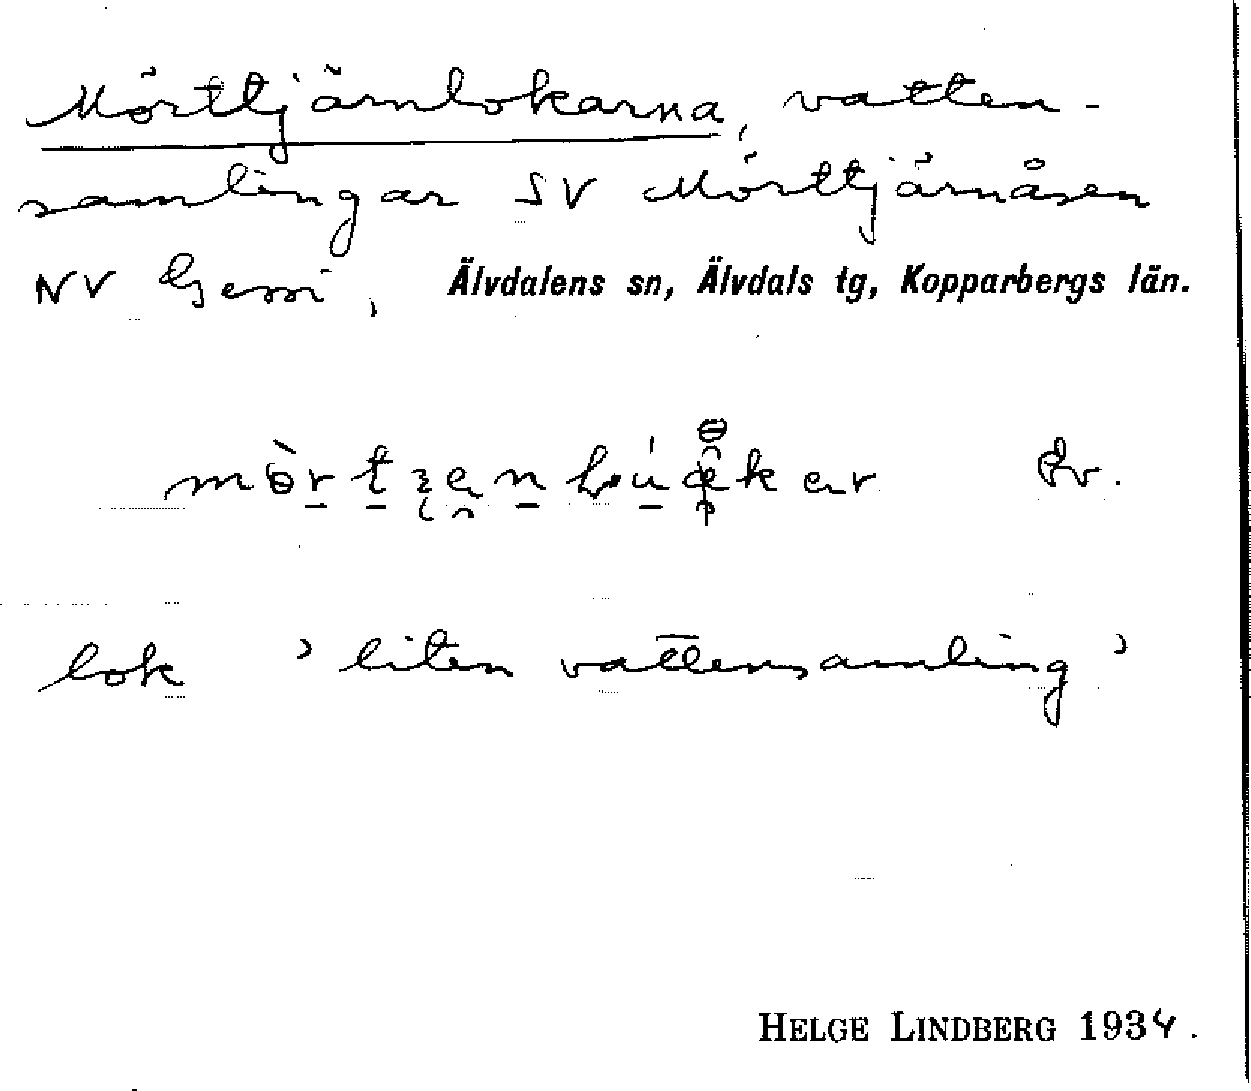 Mörttjärnlokarna, vatten-
samlingar SV Mörttjärnåsen
NV Gessi, Älvdalens sn, Älvdals tg, Kopparbergs län.
lok ’liten vattensamling’
HELGE LINDBERG 1934.